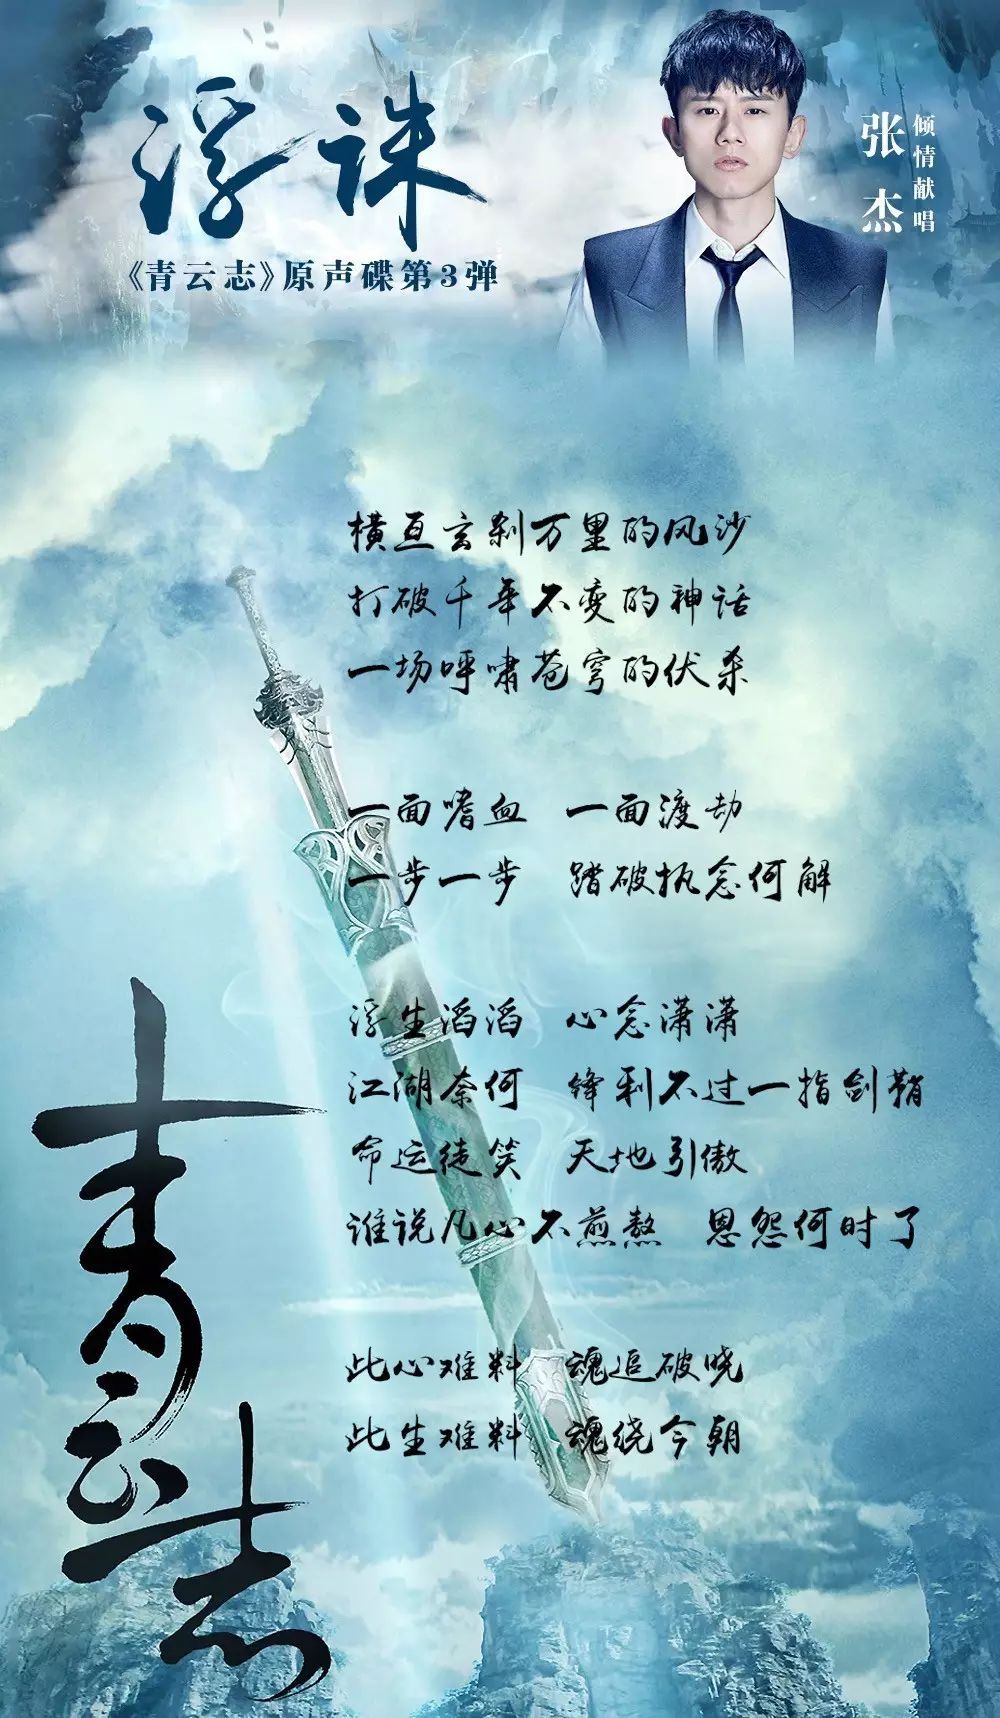 浮诛
《青云志》原声碟第3弹
张杰
倾情献唱
横亘玄刹万里的风沙
打破千年不变的神话
一场呼啸苍穹的伏杀
一面嗜血 一面渡劫
一步一步 踏破执念何解
浮生滔滔 心念潇潇
江湖奈何 锋利不过一指剑鞘
命运徒笑 天地引傲
谁说凡心不煎熬 恩怨何时了
此心难料 魂追破晓
此生难料 魂绕今朝
青云志